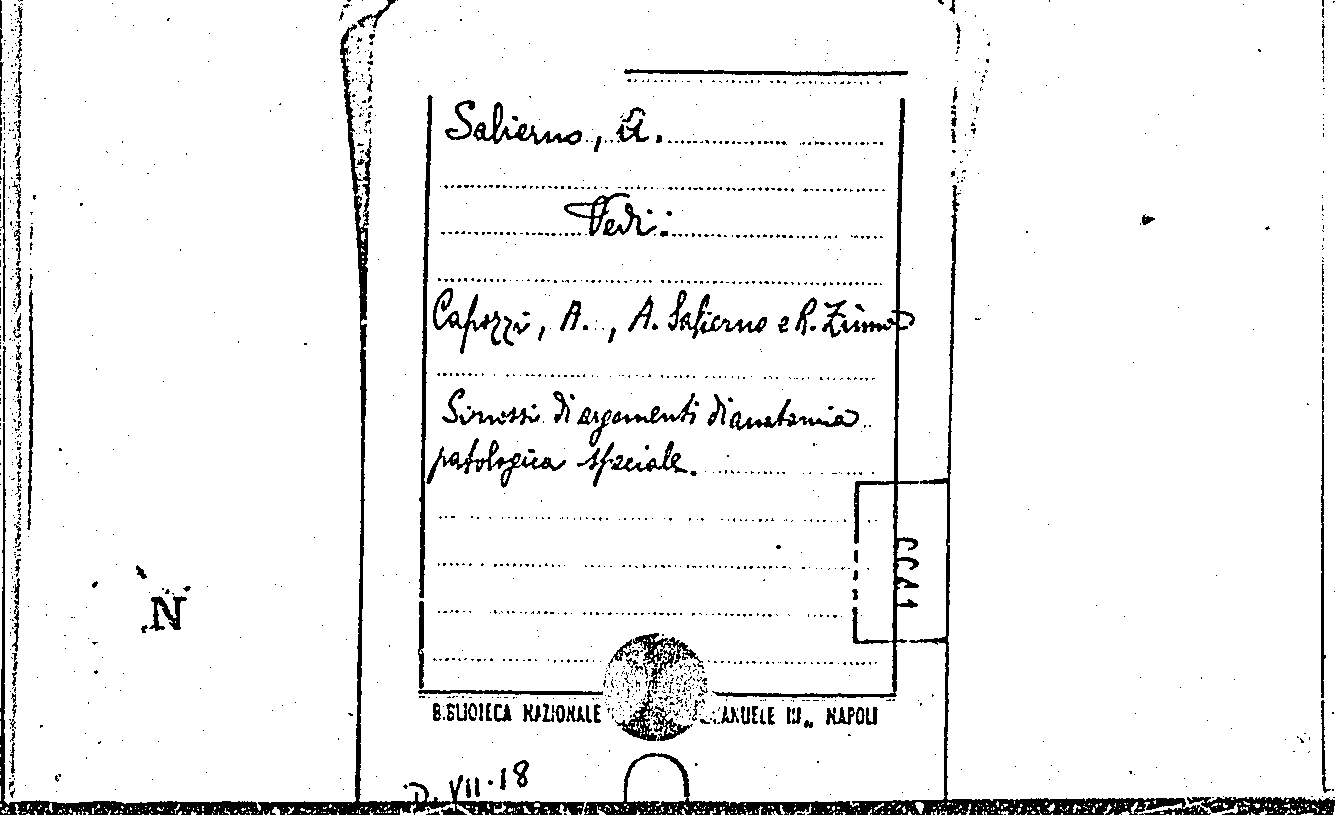 Salierno, A.
Vedi:
Capozzi, A., A. Salierno e R. Zinno
Sinossi di argomenti di anatomia
patologica speciale.
BIBLIOTECA NAZIONALE ANUELE III„ NAPOLI
D. VII-18
N